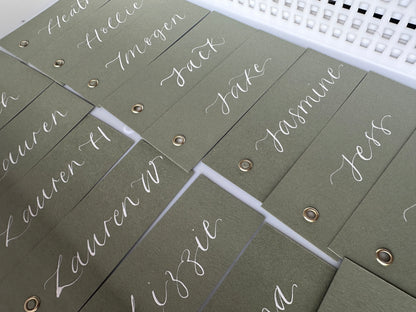 Hollie
Imogen
Jack
Jake
Jasmine
Jess
Lauren
Lauren H
Lauren W
Lizzie